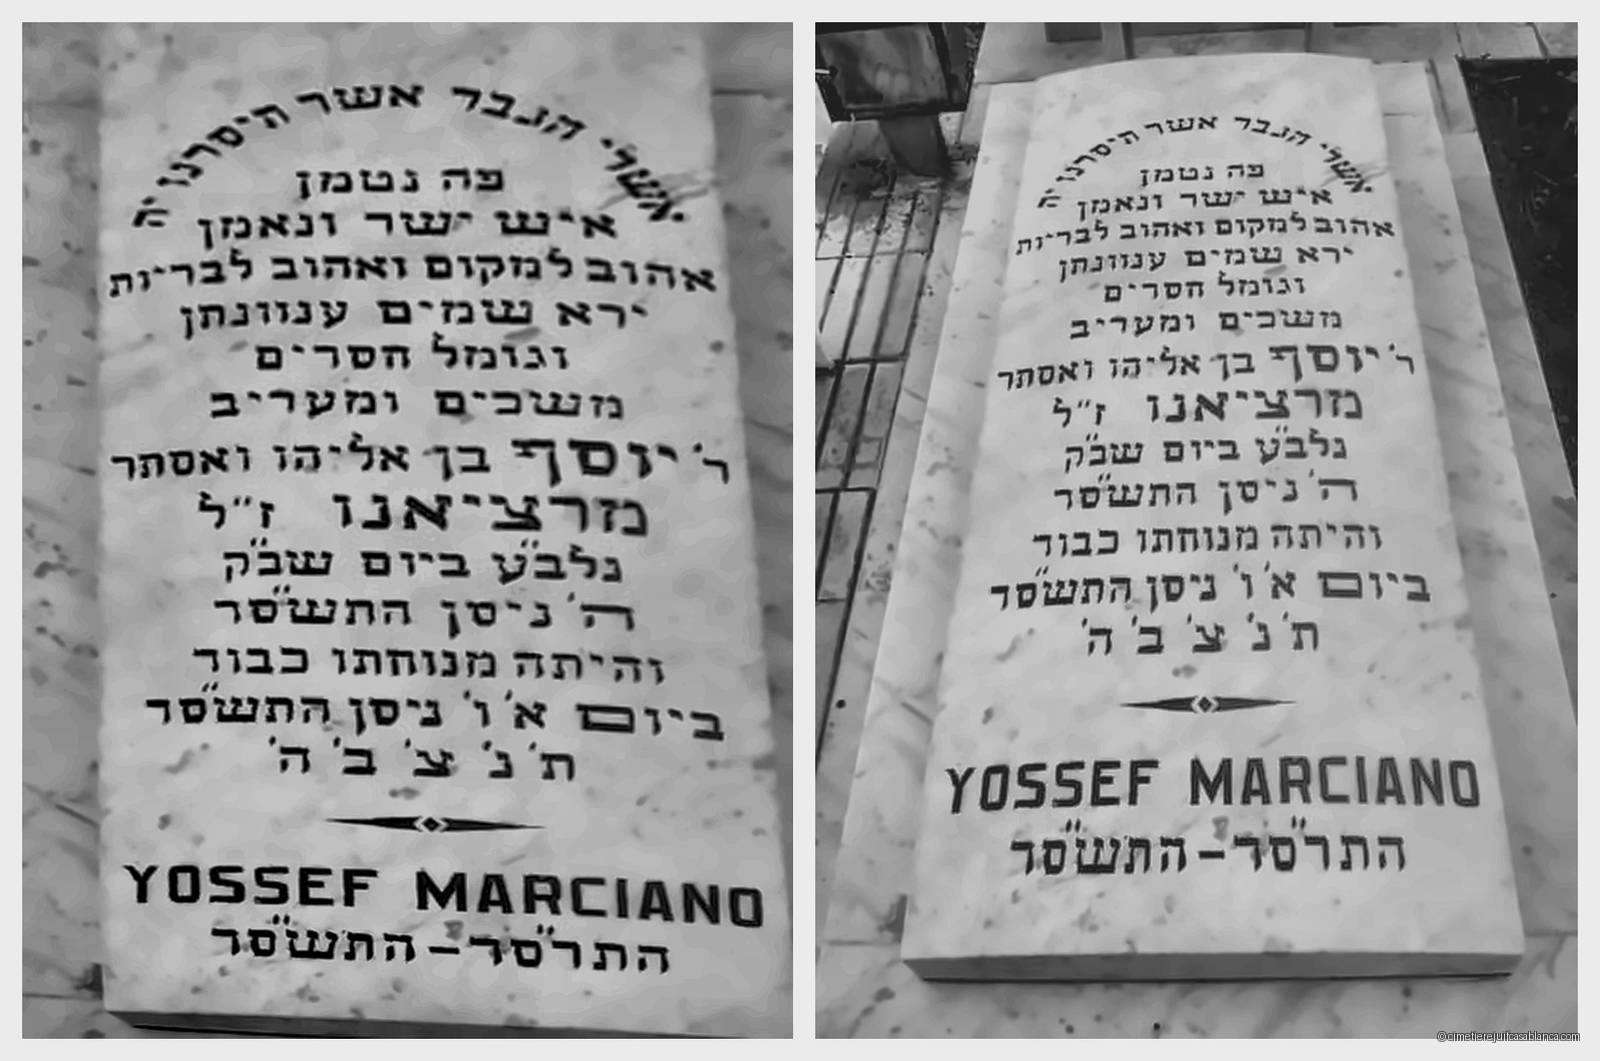 אשלי הגבר אשר תיסרנו יה
פה נטמן
איש ישר ונאמן
אהוב למקום ואהוב לבריות
ירא שמים ענוותן
וגומל חסדים
משכים ומעריב
ר' יוסף בן אליהו ואסתר
מרציאנו ז״ל
נלב״ע ביום שב״ק
ה' ניסן התש״סד
והיתה מנוחתו כבוד
ביום א' ו' ניסן התש״סד
ת' נ' צ' ב' ה'
YOSSEF MARCIANO
התר״סד – התש״סד
אשלי הגבר אשר תיסרנו יה
פה נטמן
איש ישר ונאמן
אהוב למקום ואהוב לבריות
ירא שמים ענוותן
וגומל חסדים
משכים ומעריב
ר' יוסף בן אליהו ואסתר
מרציאנו ז״ל
נלב״ע ביום שב״ק
ה' ניסן התש״סד
והיתה מנוחתו כבוד
ביום א' ו' ניסן התש״סד
ת' נ' צ' ב' ה'
YOSSEF MARCIANO
התר״סד – התש״סד
©cimetierejuifcasablanca.com